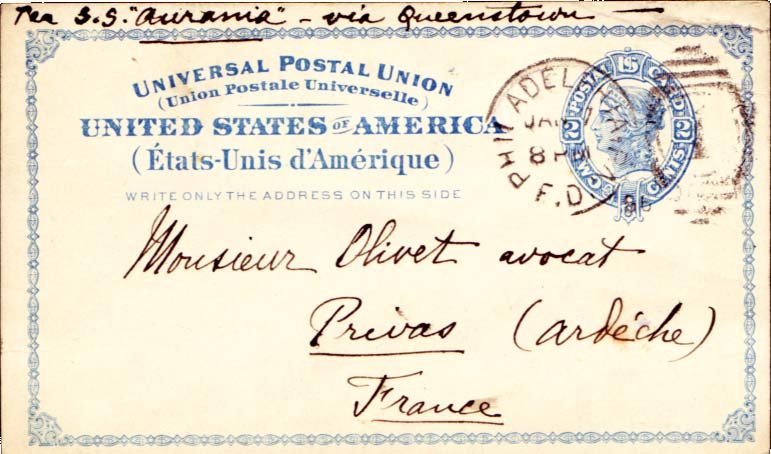 Per S.S. "Aurania" - via Queenstown
UNIVERSAL POSTAL UNION
(Union Postale Universelle)
UNITED STATES OF AMERICA
(États-Unis d'Amérique)
WRITE ONLY THE ADDRESS ON THIS SIDE
U.S. POSTAL CARD
2 CMS. 2 CENTS
PHILADELPHIA
JAN
F.D.
Monsieur Olivet avocat
Privas (Ardèche)
France